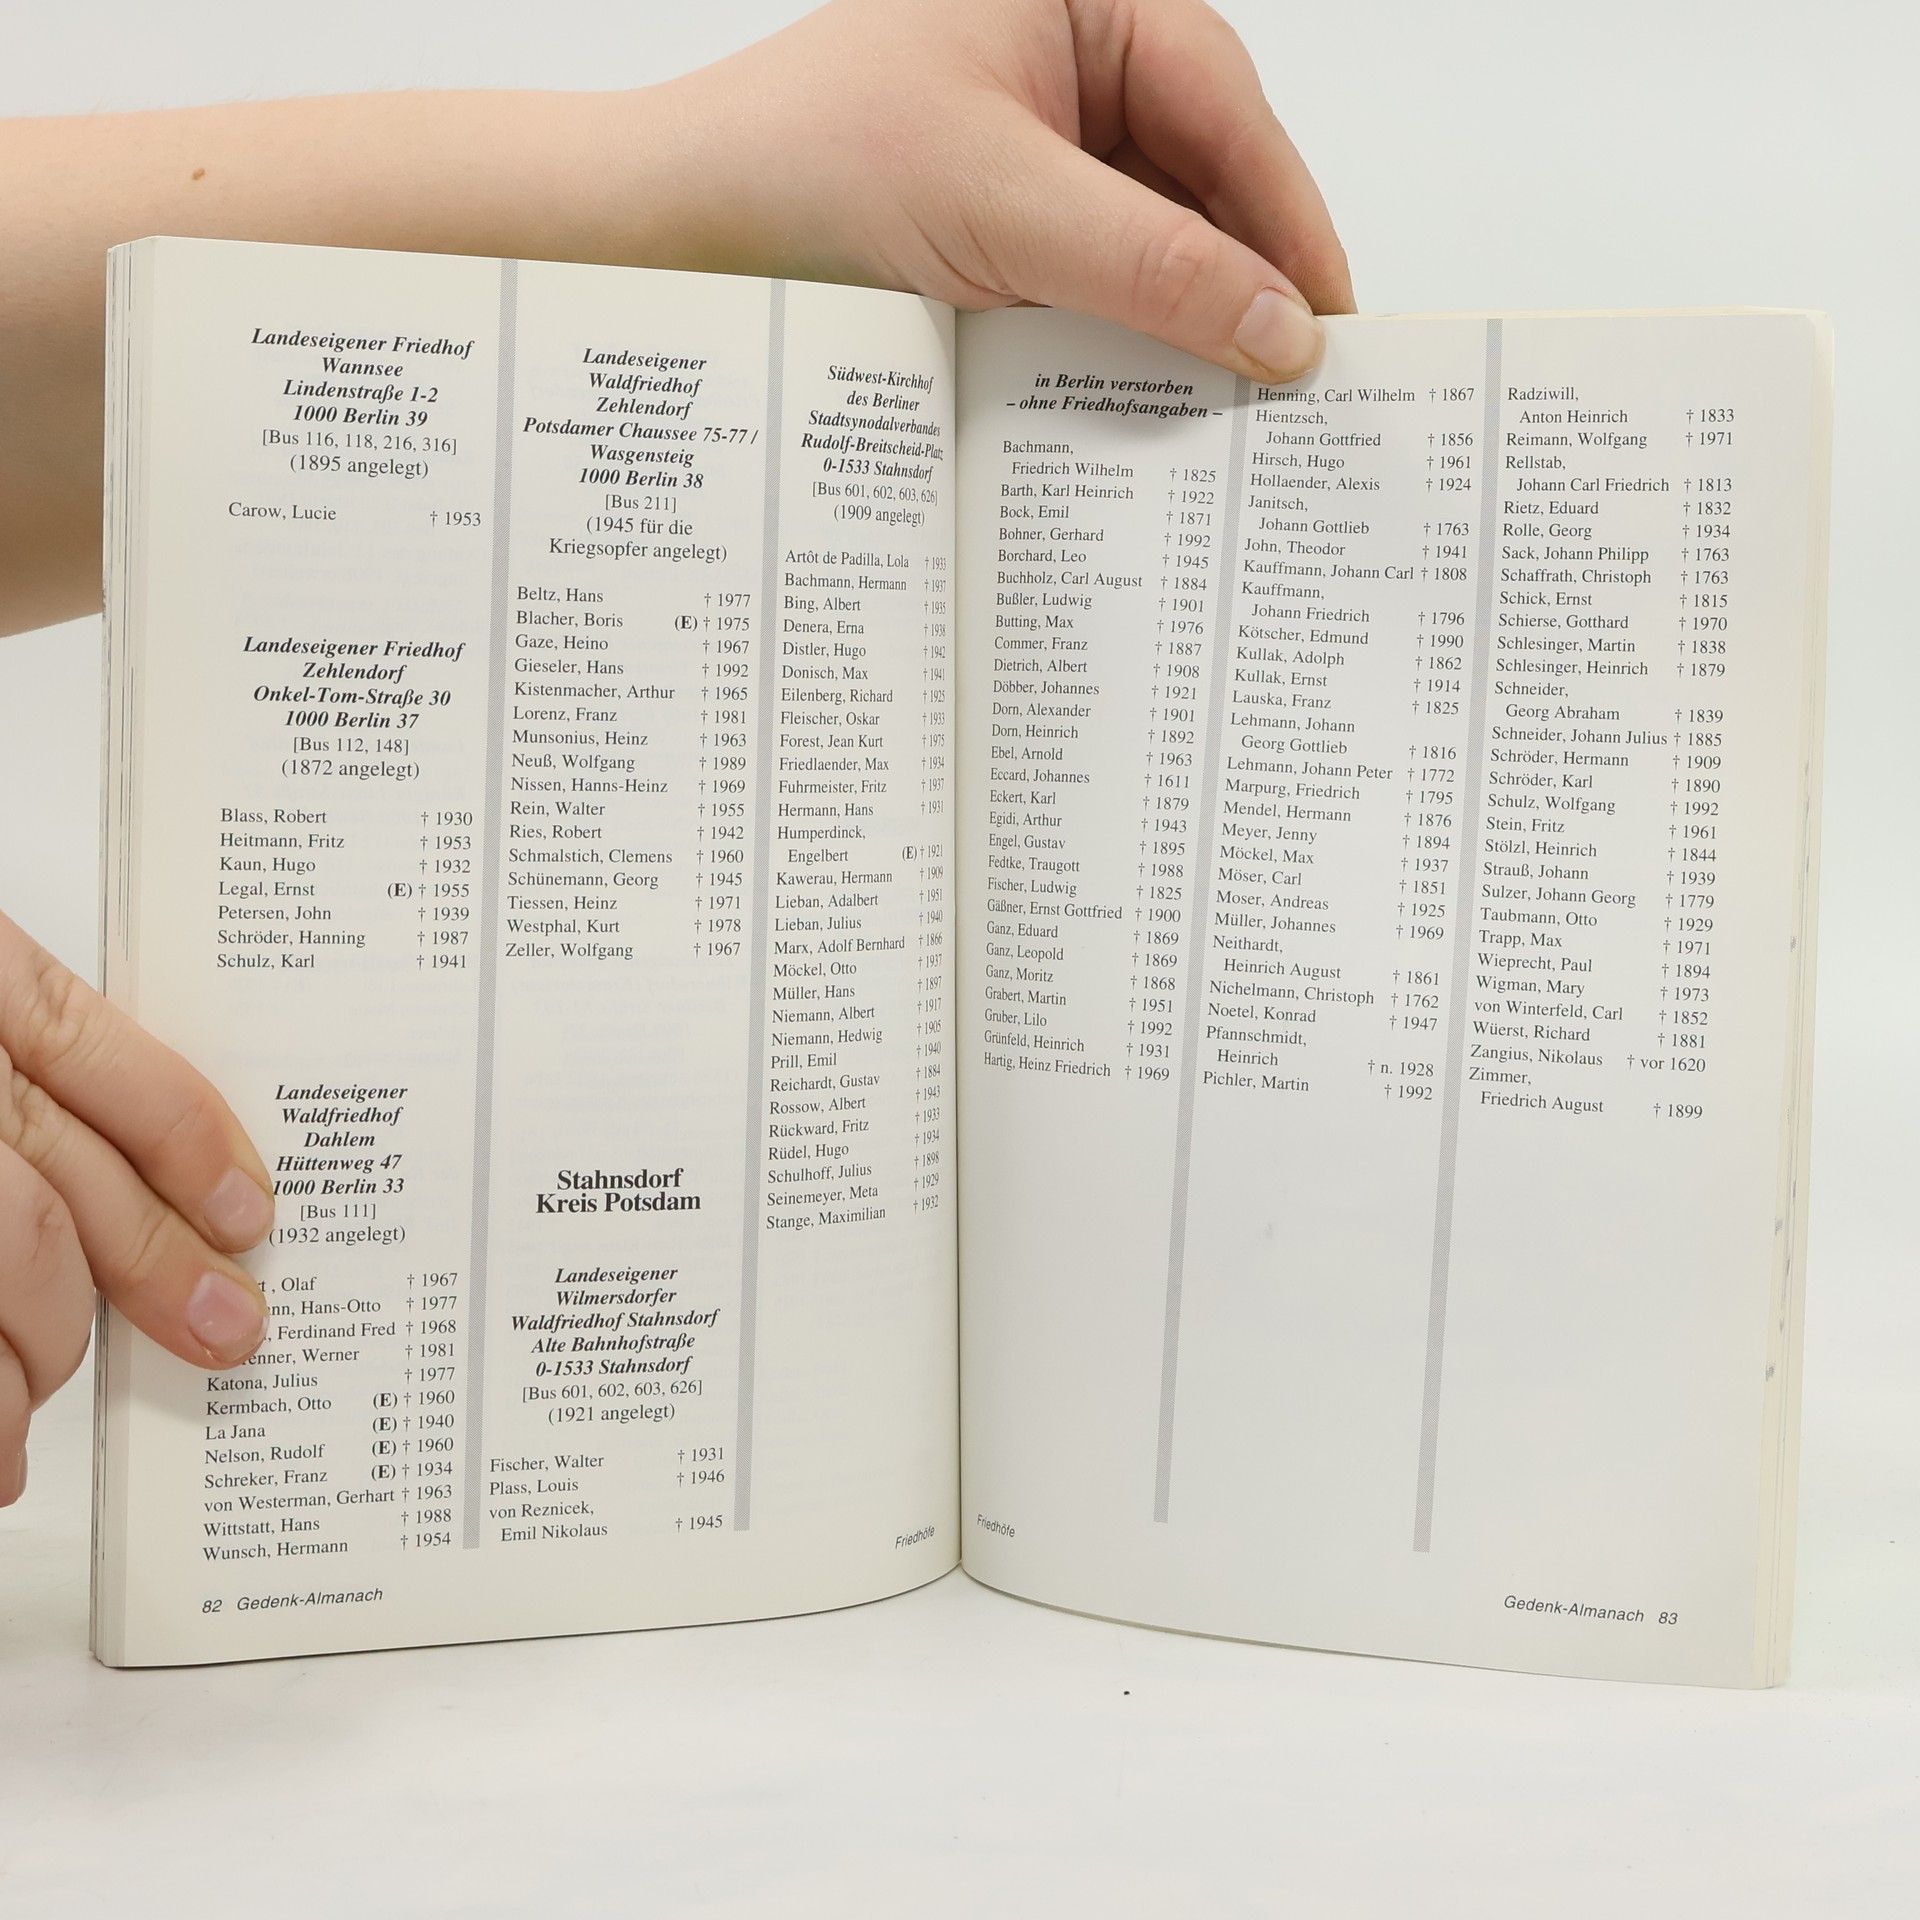 Landeseigener Friedhof
Wannsee
Lindenstraße 1-2
1000 Berlin 39
[Bus 116, 118, 216, 316]
(1895 angelegt)
Carow, Lucie † 1953
Landeseigener Friedhof
Zehlendorf
Onkel-Tom-Straße 30
1000 Berlin 37
[Bus 112, 148]
(1872 angelegt)
Blass, Robert † 1930
Heitmann, Fritz † 1953
Kaun, Hugo † 1932
Legal, Ernst (E) † 1955
Petersen, John † 1939
Schröder, Hanning † 1987
Schulz, Karl † 1941
Landeseigener
Waldfriedhof
Dahlem
Hüttenweg 47
1000 Berlin 33
[Bus 111]
(1932 angelegt)
, Olaf † 1967
Hans-Otto † 1977
Ferdinand Fred † 1968
Werner † 1981
Katona, Julius † 1977
Kermbach, Otto (E) † 1960
La Jana (E) † 1940
Nelson, Rudolf (E) † 1960
Schreker, Franz (E) † 1934
von Westerman, Gerhart † 1963
Wittstatt, Hans † 1988
Wunsch, Hermann † 1954
82 Gedenk-Almanach
Landeseigener
Waldfriedhof
Zehlendorf
Potsdamer Chaussee 75-77 /
Wasgensteig
1000 Berlin 38
[Bus 211]
(1945 für die
Kriegsopfer angelegt)
Beltz, Hans † 1977
Blacher, Boris (E) † 1975
Gaze, Heino † 1967
Gieseler, Hans † 1992
Kistenmacher, Arthur † 1965
Lorenz, Franz † 1981
Munsonius, Heinz † 1963
Neuß, Wolfgang † 1989
Nissen, Hanns-Heinz † 1969
Rein, Walter † 1955
Ries, Robert † 1942
Schmalstich, Clemens † 1960
Schünemann, Georg † 1945
Tiessen, Heinz † 1971
Westphal, Kurt † 1978
Zeller, Wolfgang † 1967
Stahnsdorf
Kreis Potsdam
Landeseigener
Wilmersdorfer
Waldfriedhof Stahnsdorf
Alte Bahnhofstraße
0-1533 Stahnsdorf
[Bus 601, 602, 603, 626]
(1921 angelegt)
Fischer, Walter † 1931
Plass, Louis † 1946
von Reznicek,
Emil Nikolaus † 1945
Südwest-Kirchhof
des Berliner
Stadtsynodalverbandes
Rudolf-Breitscheid-Platz
0-1533 Stahnsdorf
[Bus 601, 602, 603, 626]
(1909 angelegt)
Artôt de Padilla, Lola † 1933
Bachmann, Hermann † 1937
Bing, Albert † 1935
Denera, Erna † 1938
Distler, Hugo † 1942
Donisch, Max † 1941
Eilenberg, Richard † 1925
Fleischer, Oskar † 1933
Forest, Jean Kurt † 1975
Friedlaender, Max † 1934
Fuhrmeister, Fritz † 1937
Hermann, Hans † 1931
Humperdinck,
Engelbert (E) † 1921
Kawerau, Hermann † 1909
Lieban, Adalbert † 1951
Lieban, Julius † 1940
Marx, Adolf Bernhard † 1866
Möckel, Otto † 1937
Müller, Hans † 1897
Niemann, Albert † 1917
Niemann, Hedwig † 1905
Prill, Emil † 1940
Reichardt, Gustav † 1884
Rossow, Albert † 1943
Rückward, Fritz † 1933
Rüdel, Hugo † 1934
Schulhoff, Julius † 1898
Seinemeyer, Meta † 1929
Stange, Maximilian † 1932
Friedhöfe
in Berlin verstorben
– ohne Friedhofsangaben –
Bachmann,
Friedrich Wilhelm † 1825
Barth, Karl Heinrich † 1922
Bock, Emil † 1871
Bohner, Gerhard † 1992
Borchard, Leo † 1945
Buchholz, Carl August † 1884
Bußler, Ludwig † 1901
Butting, Max † 1976
Commer, Franz † 1887
Dietrich, Albert † 1908
Döbber, Johannes † 1921
Dorn, Alexander † 1901
Dorn, Heinrich † 1892
Ebel, Arnold † 1963
Eccard, Johannes † 1611
Eckert, Karl † 1879
Egidi, Arthur † 1943
Engel, Gustav † 1895
Fedtke, Traugott † 1988
Fischer, Ludwig † 1825
Gäßner, Ernst Gottfried † 1900
Ganz, Eduard † 1869
Ganz, Leopold † 1869
Ganz, Moritz † 1868
Grabert, Martin † 1951
Gruber, Lilo † 1992
Grünfeld, Heinrich † 1931
Hartig, Heinz Friedrich † 1969
Friedhöfe
Henning, Carl Wilhelm † 1867
Hientzsch,
Johann Gottfried † 1856
Hirsch, Hugo † 1961
Hollaender, Alexis † 1924
Janitsch,
Johann Gottlieb † 1763
John, Theodor † 1941
Kauffmann, Johann Carl † 1808
Kauffmann,
Johann Friedrich † 1796
Kötscher, Edmund † 1990
Kullak, Adolph † 1862
Kullak, Ernst † 1914
Lauska, Franz † 1825
Lehmann, Johann
Georg Gottlieb † 1816
Lehmann, Johann Peter † 1772
Marpurg, Friedrich † 1795
Mendel, Hermann † 1876
Meyer, Jenny † 1894
Möckel, Max † 1937
Möser, Carl † 1851
Moser, Andreas † 1925
Müller, Johannes † 1969
Neithardt,
Heinrich August † 1861
Nichelmann, Christoph † 1762
Noetel, Konrad † 1947
Pfannschmidt,
Heinrich † n. 1928
Pichler, Martin † 1992
Radziwill,
Anton Heinrich † 1833
Reimann, Wolfgang † 1971
Rellstab,
Johann Carl Friedrich † 1813
Rietz, Eduard † 1832
Rolle, Georg † 1934
Sack, Johann Philipp † 1763
Schaffrath, Christoph † 1763
Schick, Ernst † 1815
Schierse, Gotthard † 1970
Schlesinger, Martin † 1838
Schlesinger, Heinrich † 1879
Schneider,
Georg Abraham † 1839
Schneider, Johann Julius † 1885
Schröder, Hermann † 1909
Schröder, Karl † 1890
Schulz, Wolfgang † 1992
Stein, Fritz † 1961
Stölzl, Heinrich † 1844
Strauß, Johann † 1939
Sulzer, Johann Georg † 1779
Taubmann, Otto † 1929
Trapp, Max † 1971
Wieprecht, Paul † 1894
Wigman, Mary † 1973
von Winterfeld, Carl † 1852
Wüerst, Richard † 1881
Zangius, Nikolaus † vor 1620
Zimmer,
Friedrich August † 1899
Gedenk-Almanach 83